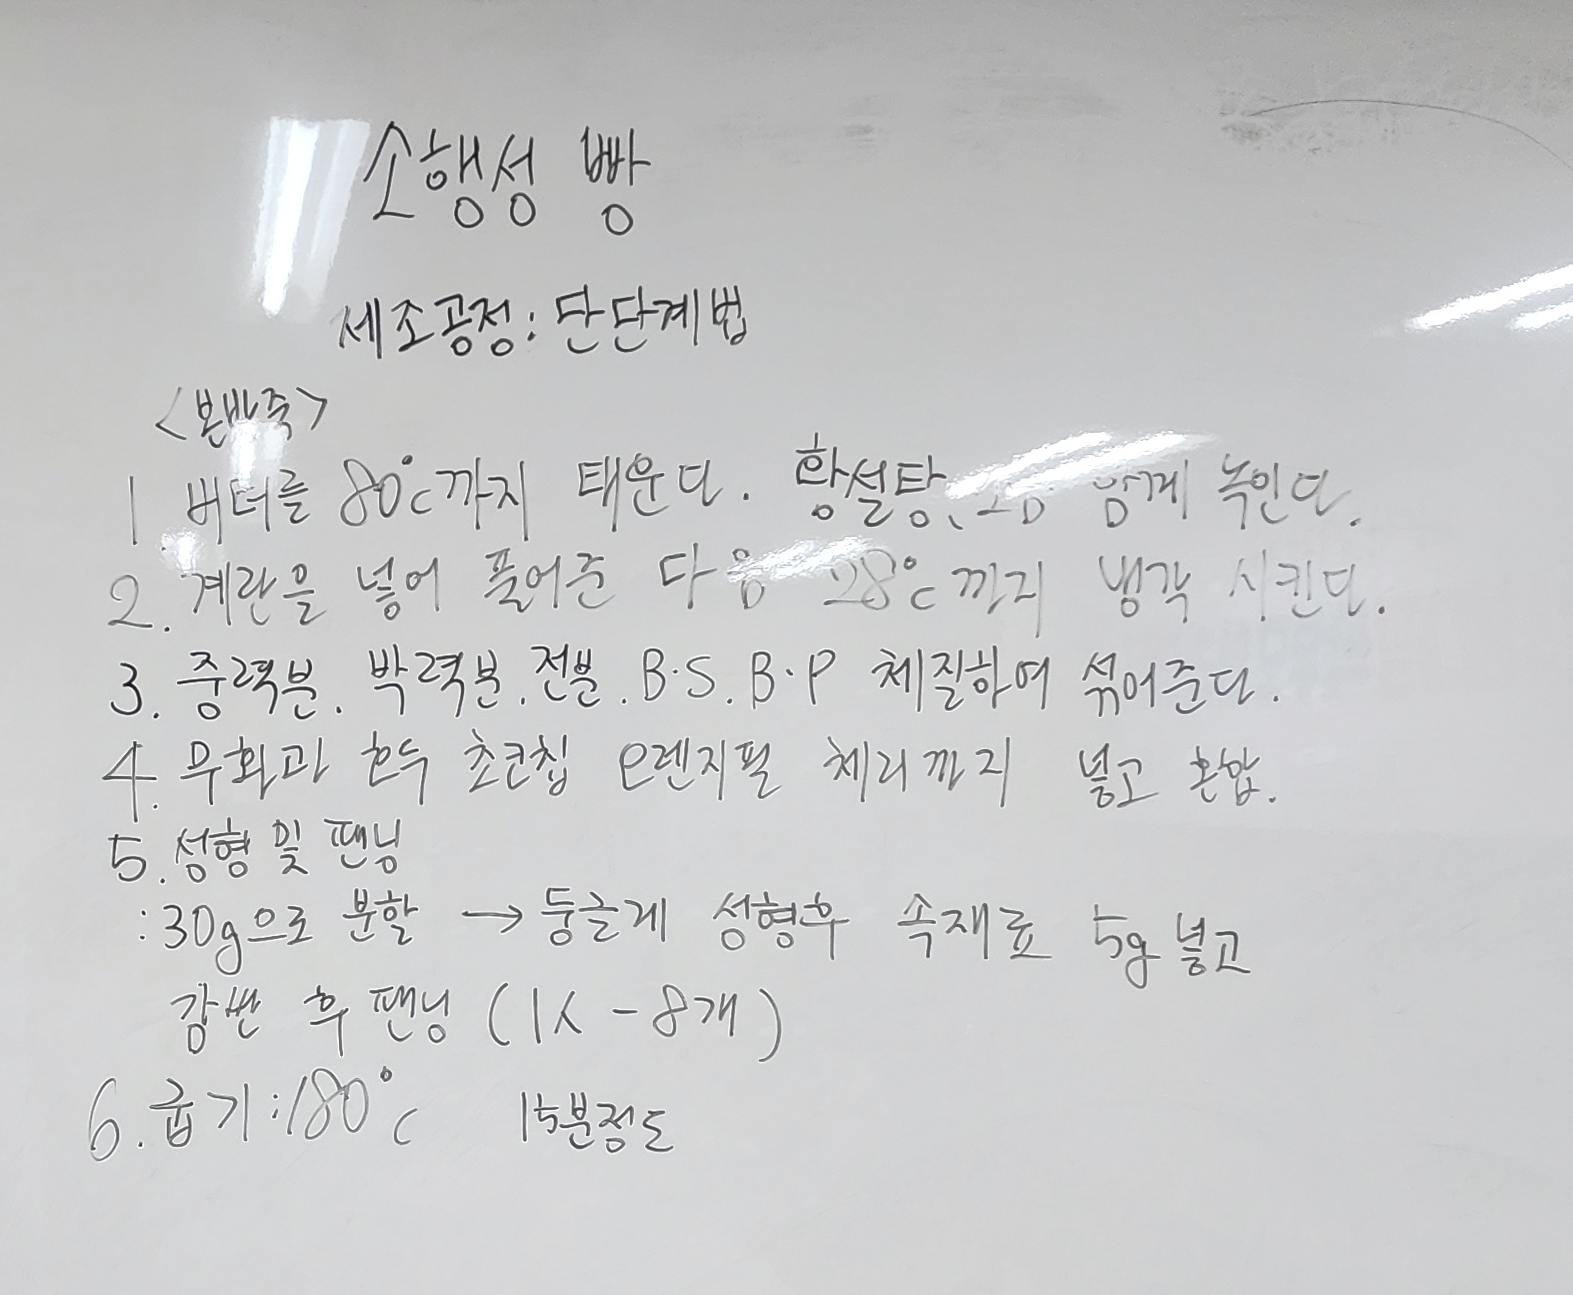 소행성 빵
세조공정: 단단계법
<본반죽>
1. 버터를 80°c까지 태운다. 황설탕, 함께 녹인다.
2. 계란을 넣어 풀어준 다음 28°c까지 냉각 시킨다.
3. 중력분. 박력분. 전분. B·S. B·P 체질하여 섞어준다.
4. 무화과 호두 초코칩 오렌지필 체리까지 넣고 혼합.
5. 성형 및 팬닝
: 30g으로 분할 → 둥글게 성형후 속재료 5g 넣고
감싼 후 팬닝 (1人 - 8개)
6. 굽기: 180°c 15분정도